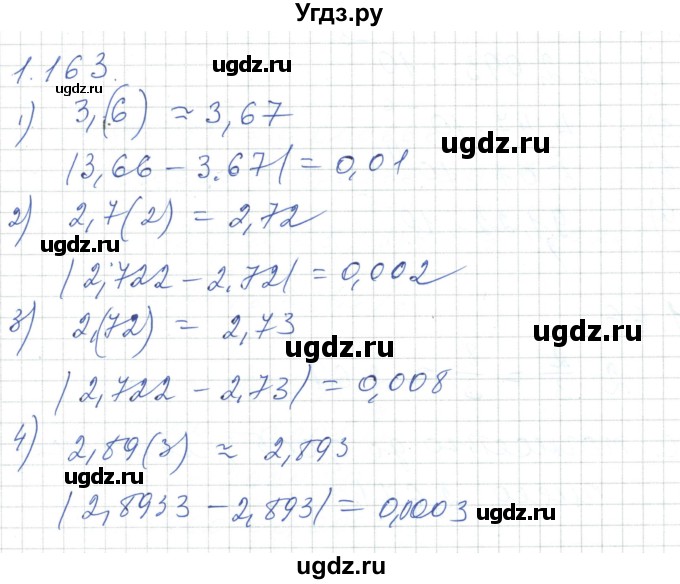 Угдз.ру
1.163.
ugdz.ru
ugdz.ru
1) 3,(6) ≈ 3,67
ugdz.ru
|3,66 - 3.67| = 0,01
2) 2,7(2) = 2,72
ugdz.ru
|2,722 - 2,72| = 0,002
ugdz.ru
3) 2,(72) = 2,73
ugdz.ru
|2,722 - 2,73| = 0,008
ugdz.ru
4) 2,89(3) ≈ 2,893
ugdz.ru
|2,8933 - 2,893| = 0,0003
ugdz.ru
ugdz.ru